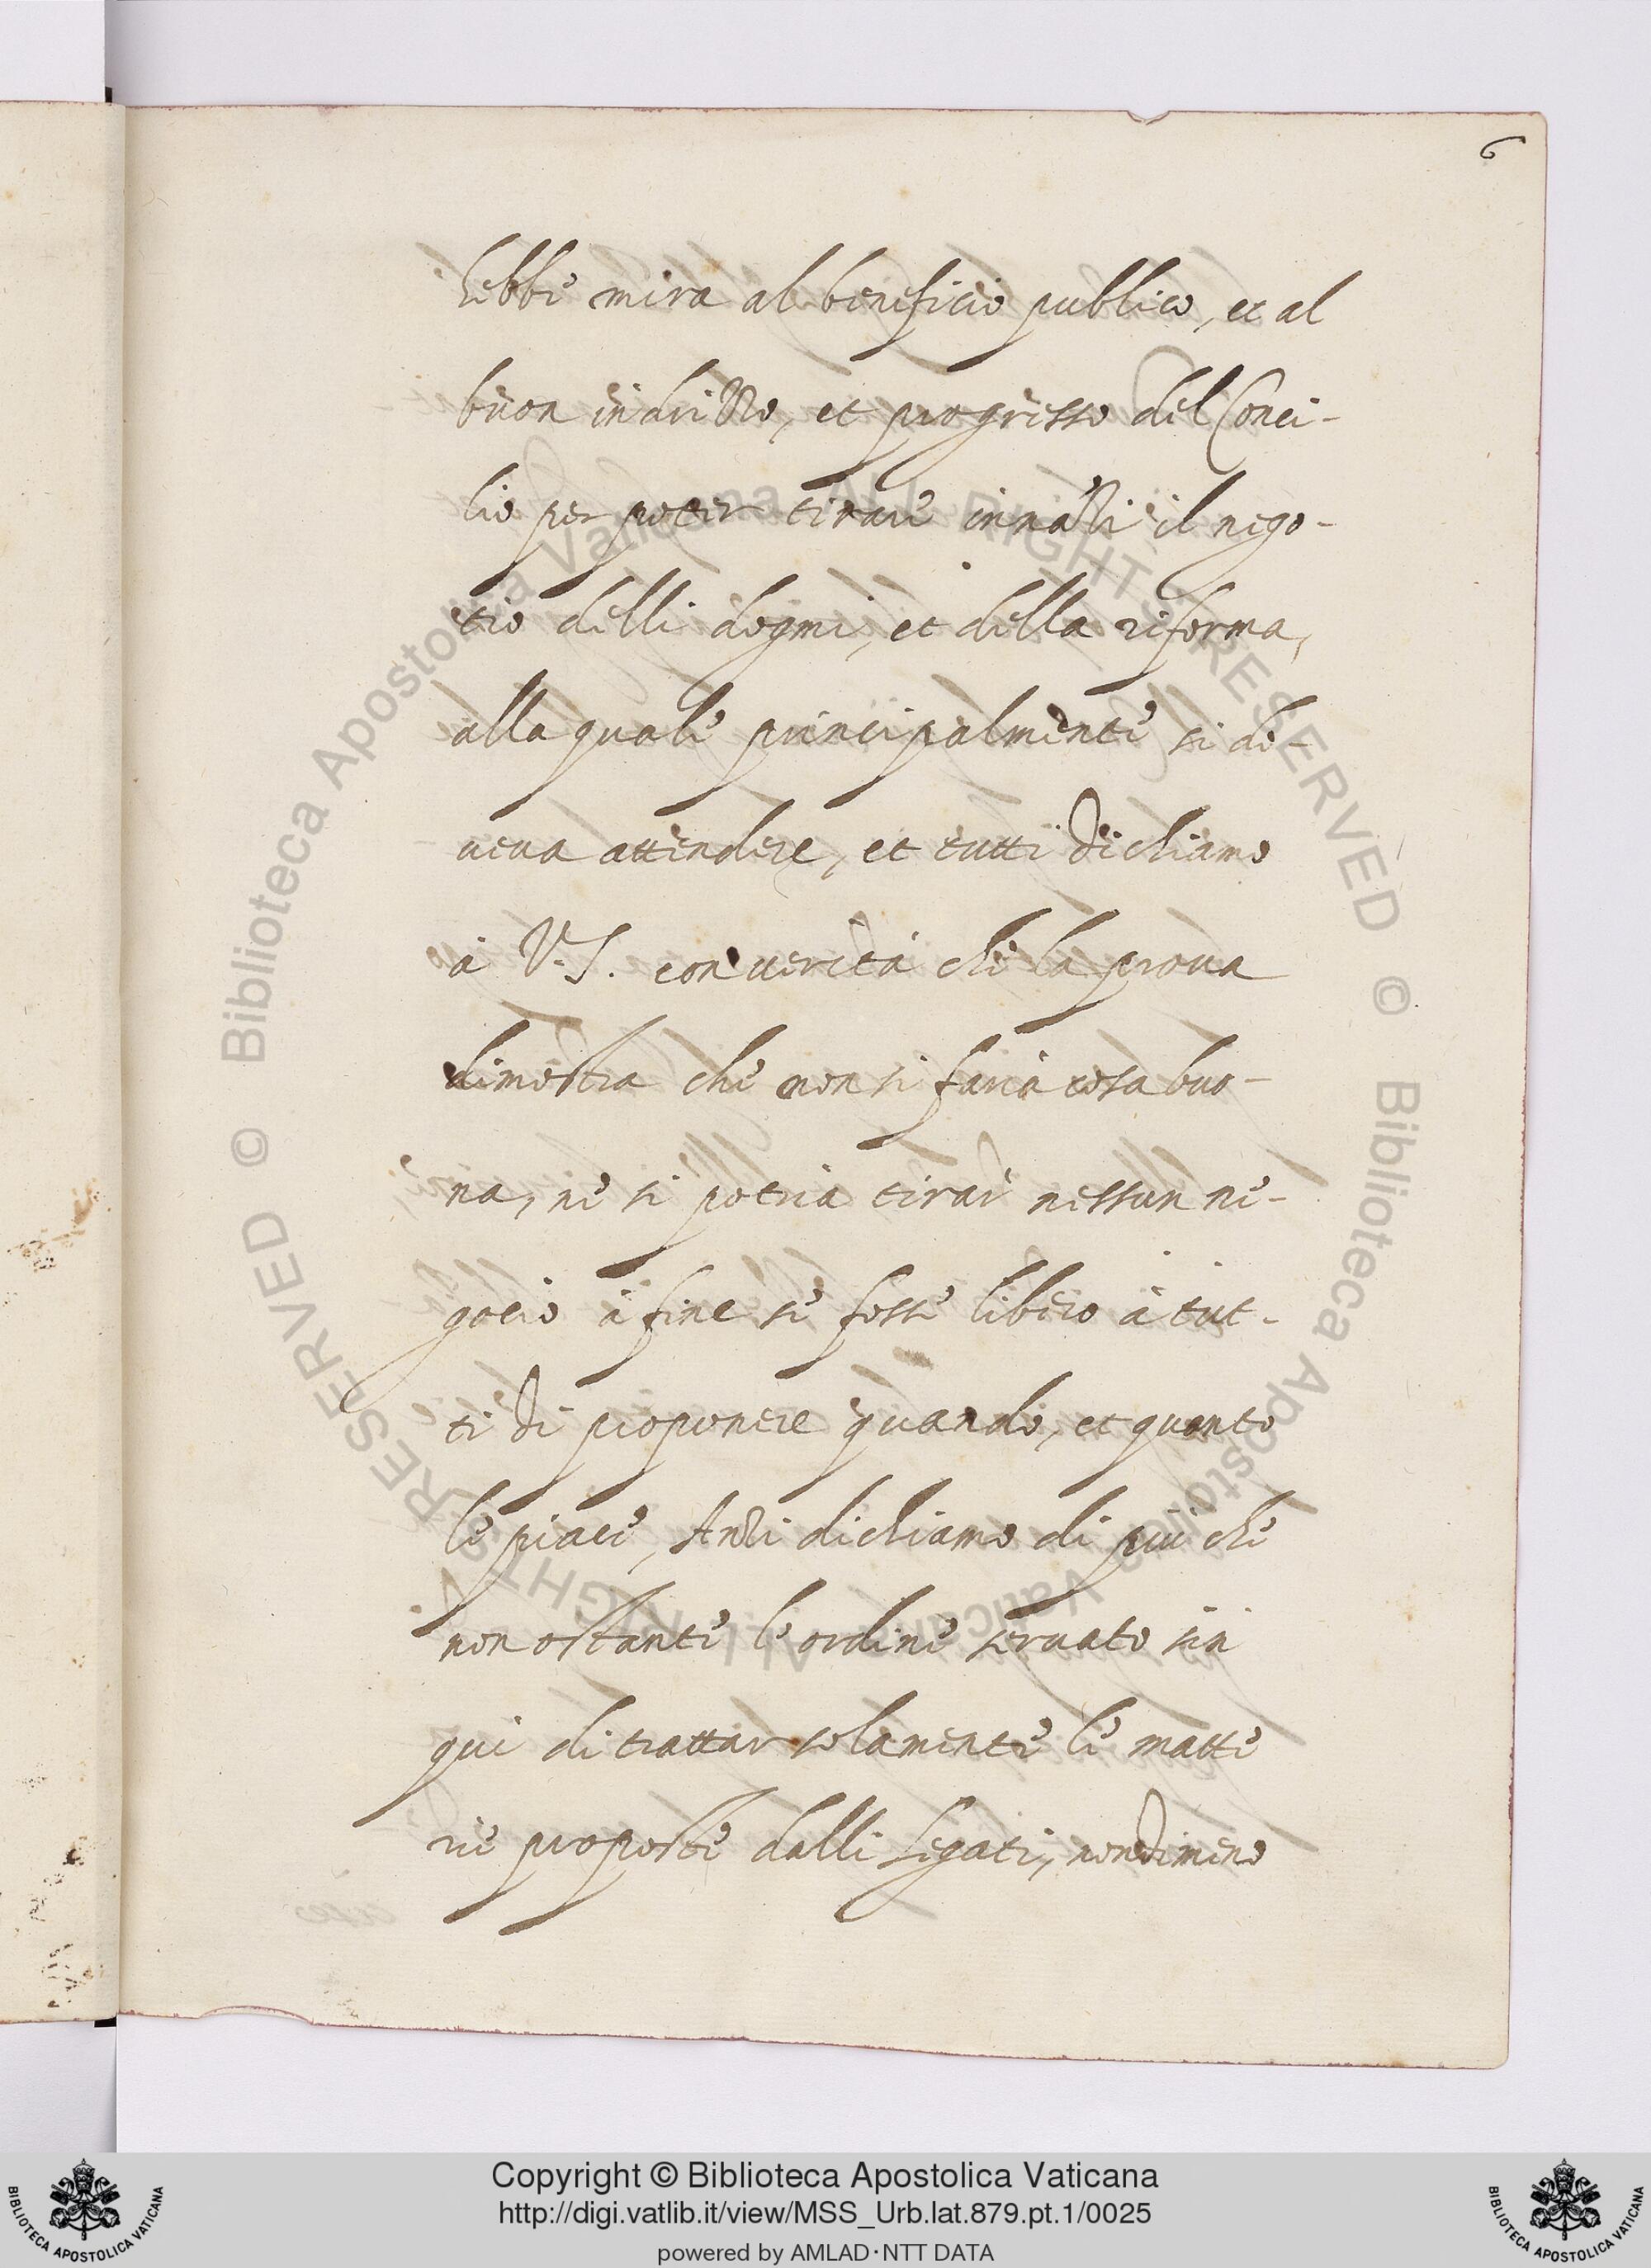 6
hebbe mira al beneficio publico, et al
buon indrizzo, et progresso del Conci-
lio per poter tirare innãzi il nego-
tio delli dogmi, et della riforma,
alla quale principalmente si do-
ueua attendere, et tutti dichiamo
à V. S. con uerità che la proua
dimostra che non si faria cosa buo-
na, ne si potria tirar nessun ne-
gocio à fine se fosse libero à tut-
ti di proponere quando, et quanto
le piace, Anzi dichiamo di più che
non ostante l'ordine seruato sin
qui di trattar solamente le matte
rie proposte dalli legati, nondimeno
© Biblioteca Apostolica Vaticana ALL RIGHTS RESERVED © Biblioteca Apostolica Vaticana ALL RIGHTS RESERVED
Copyright © Biblioteca Apostolica Vaticana
http://digi.vatlib.it/view/MSS_Urb.lat.879.pt.1/0025
powered by AMLAD·NTT DATA
BIBLIOTECA APOSTOLICA VATICANA
BIBLIOTECA APOSTOLICA VATICANA